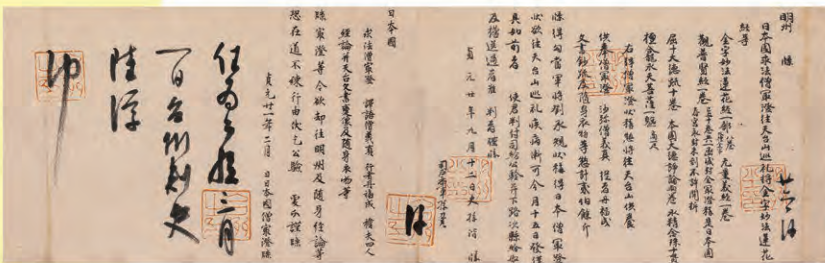 明州 牒
日本國求法僧最澄往天台山巡礼将金字妙法蓮花
経等
金字妙法蓮花経一部 無量義経一巻
觀普賢経一巻 已上十巻共一函盛封全最澄称是日本國
春宮永封未到不許開拆
屈十大德疏十巻 本國大德諍論兩巻 水精念珠十貫
檀龕水天菩薩一軀 高一尺
右得僧最澄状称惣将往天台山供養
供奉僧最澄 沙弥僧義真 従者丹福成
文書鈔疏及随身衣物等惣計貳伯餘斤
牒得勾當軍将劉承規状称得日本僧最澄
状欲往天台山巡礼疾病漸可今月十五日發謹
具如前者 使君判付司給公験并下路次縣給舡
及擔送過者准判者謹牒
貞元廿年九月十二日史孫階 牒
司戸參軍孫
日本國
求法僧最澄 譯語僧義真 行者丹福成 擔夫四人
経論并天台文書變像及随身衣物等
牒最澄等今欲却往明州及随身経論等
恐在道不練行由伏乞公験 處分謹牒
貞元廿一年二月 日日本國僧最澄牒
任為公験三月
一日台州刺史
陸淳
印